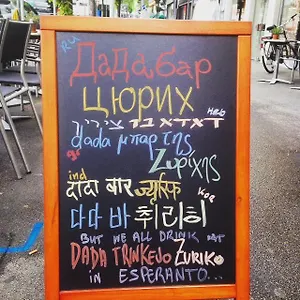 RU
Дада бар
ЦЮРИХ
Heb
דאדא בר ציריך
gr dada μπαρ της
Ζυρίχης
ind
दादा बार ज्यूरिख
Kor
다다 바 취리히
BUT WE ALL DRINK AT
DADA TRINKEJO ZURIKO
IN ESPERANTO...